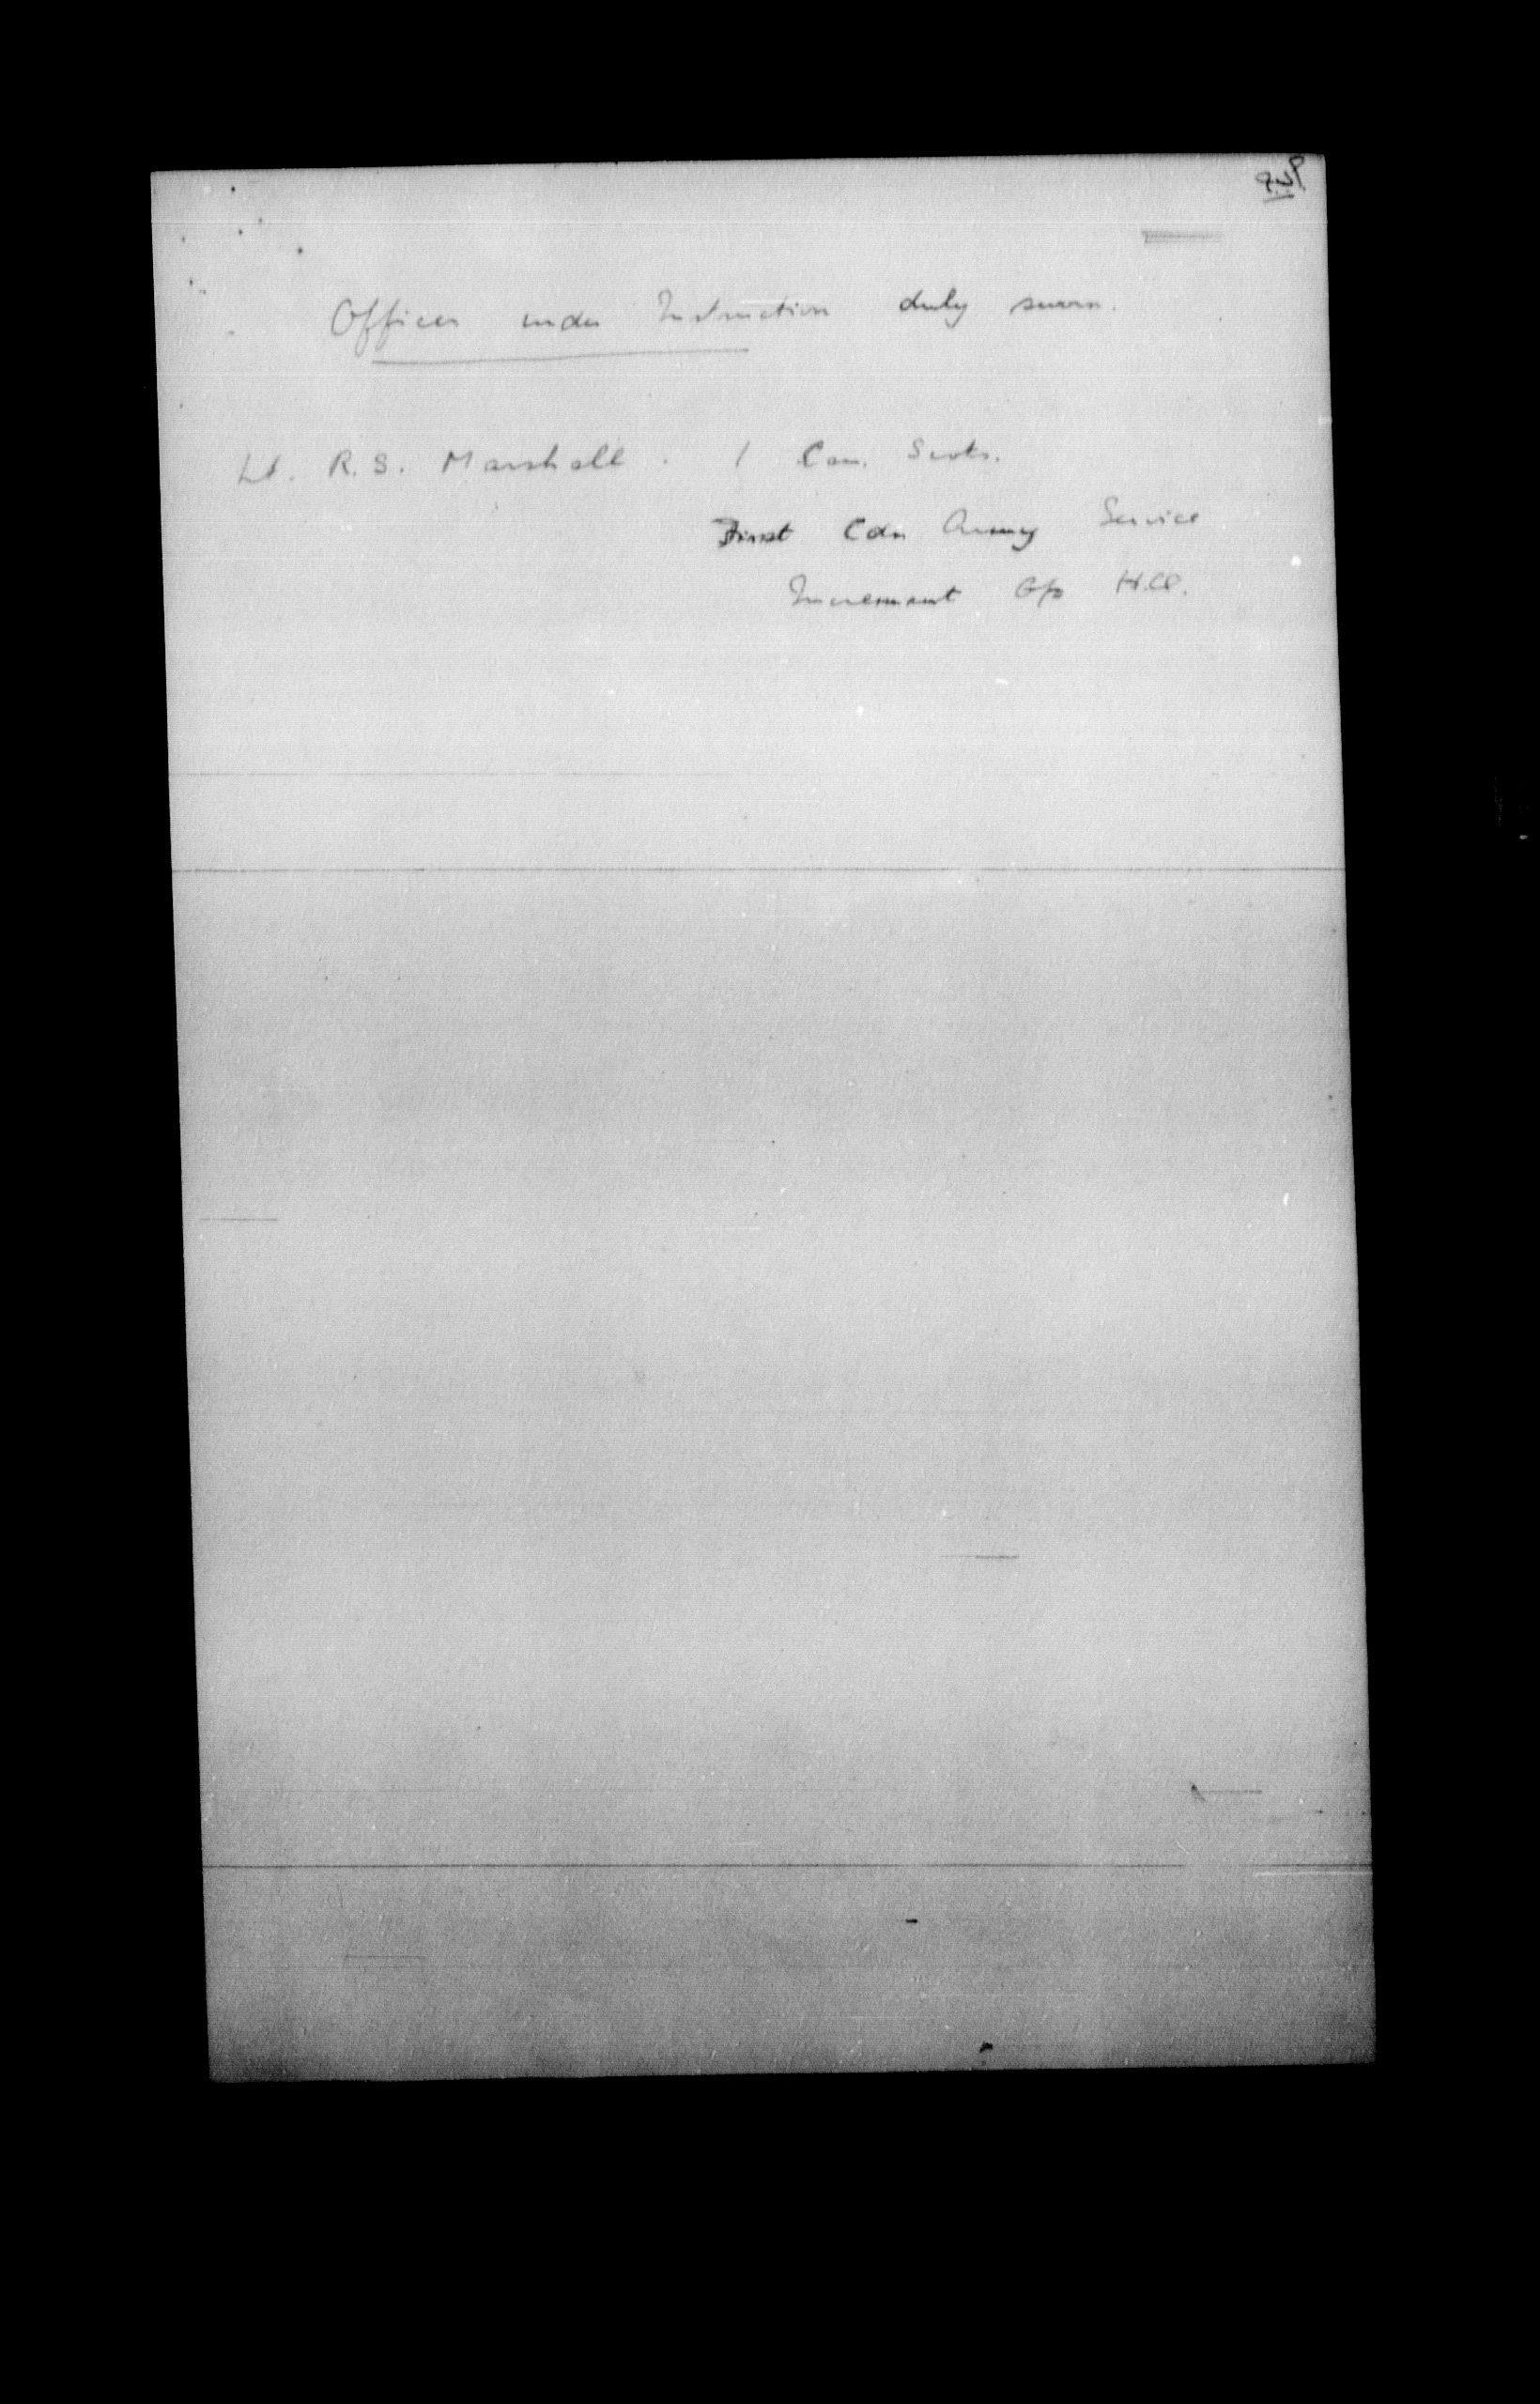 Officer under Instruction duly sworn.
Lt. R.S. Marshall. 1 Can. Scots.
First Cdn Army Service
Increment Gp H.Q.